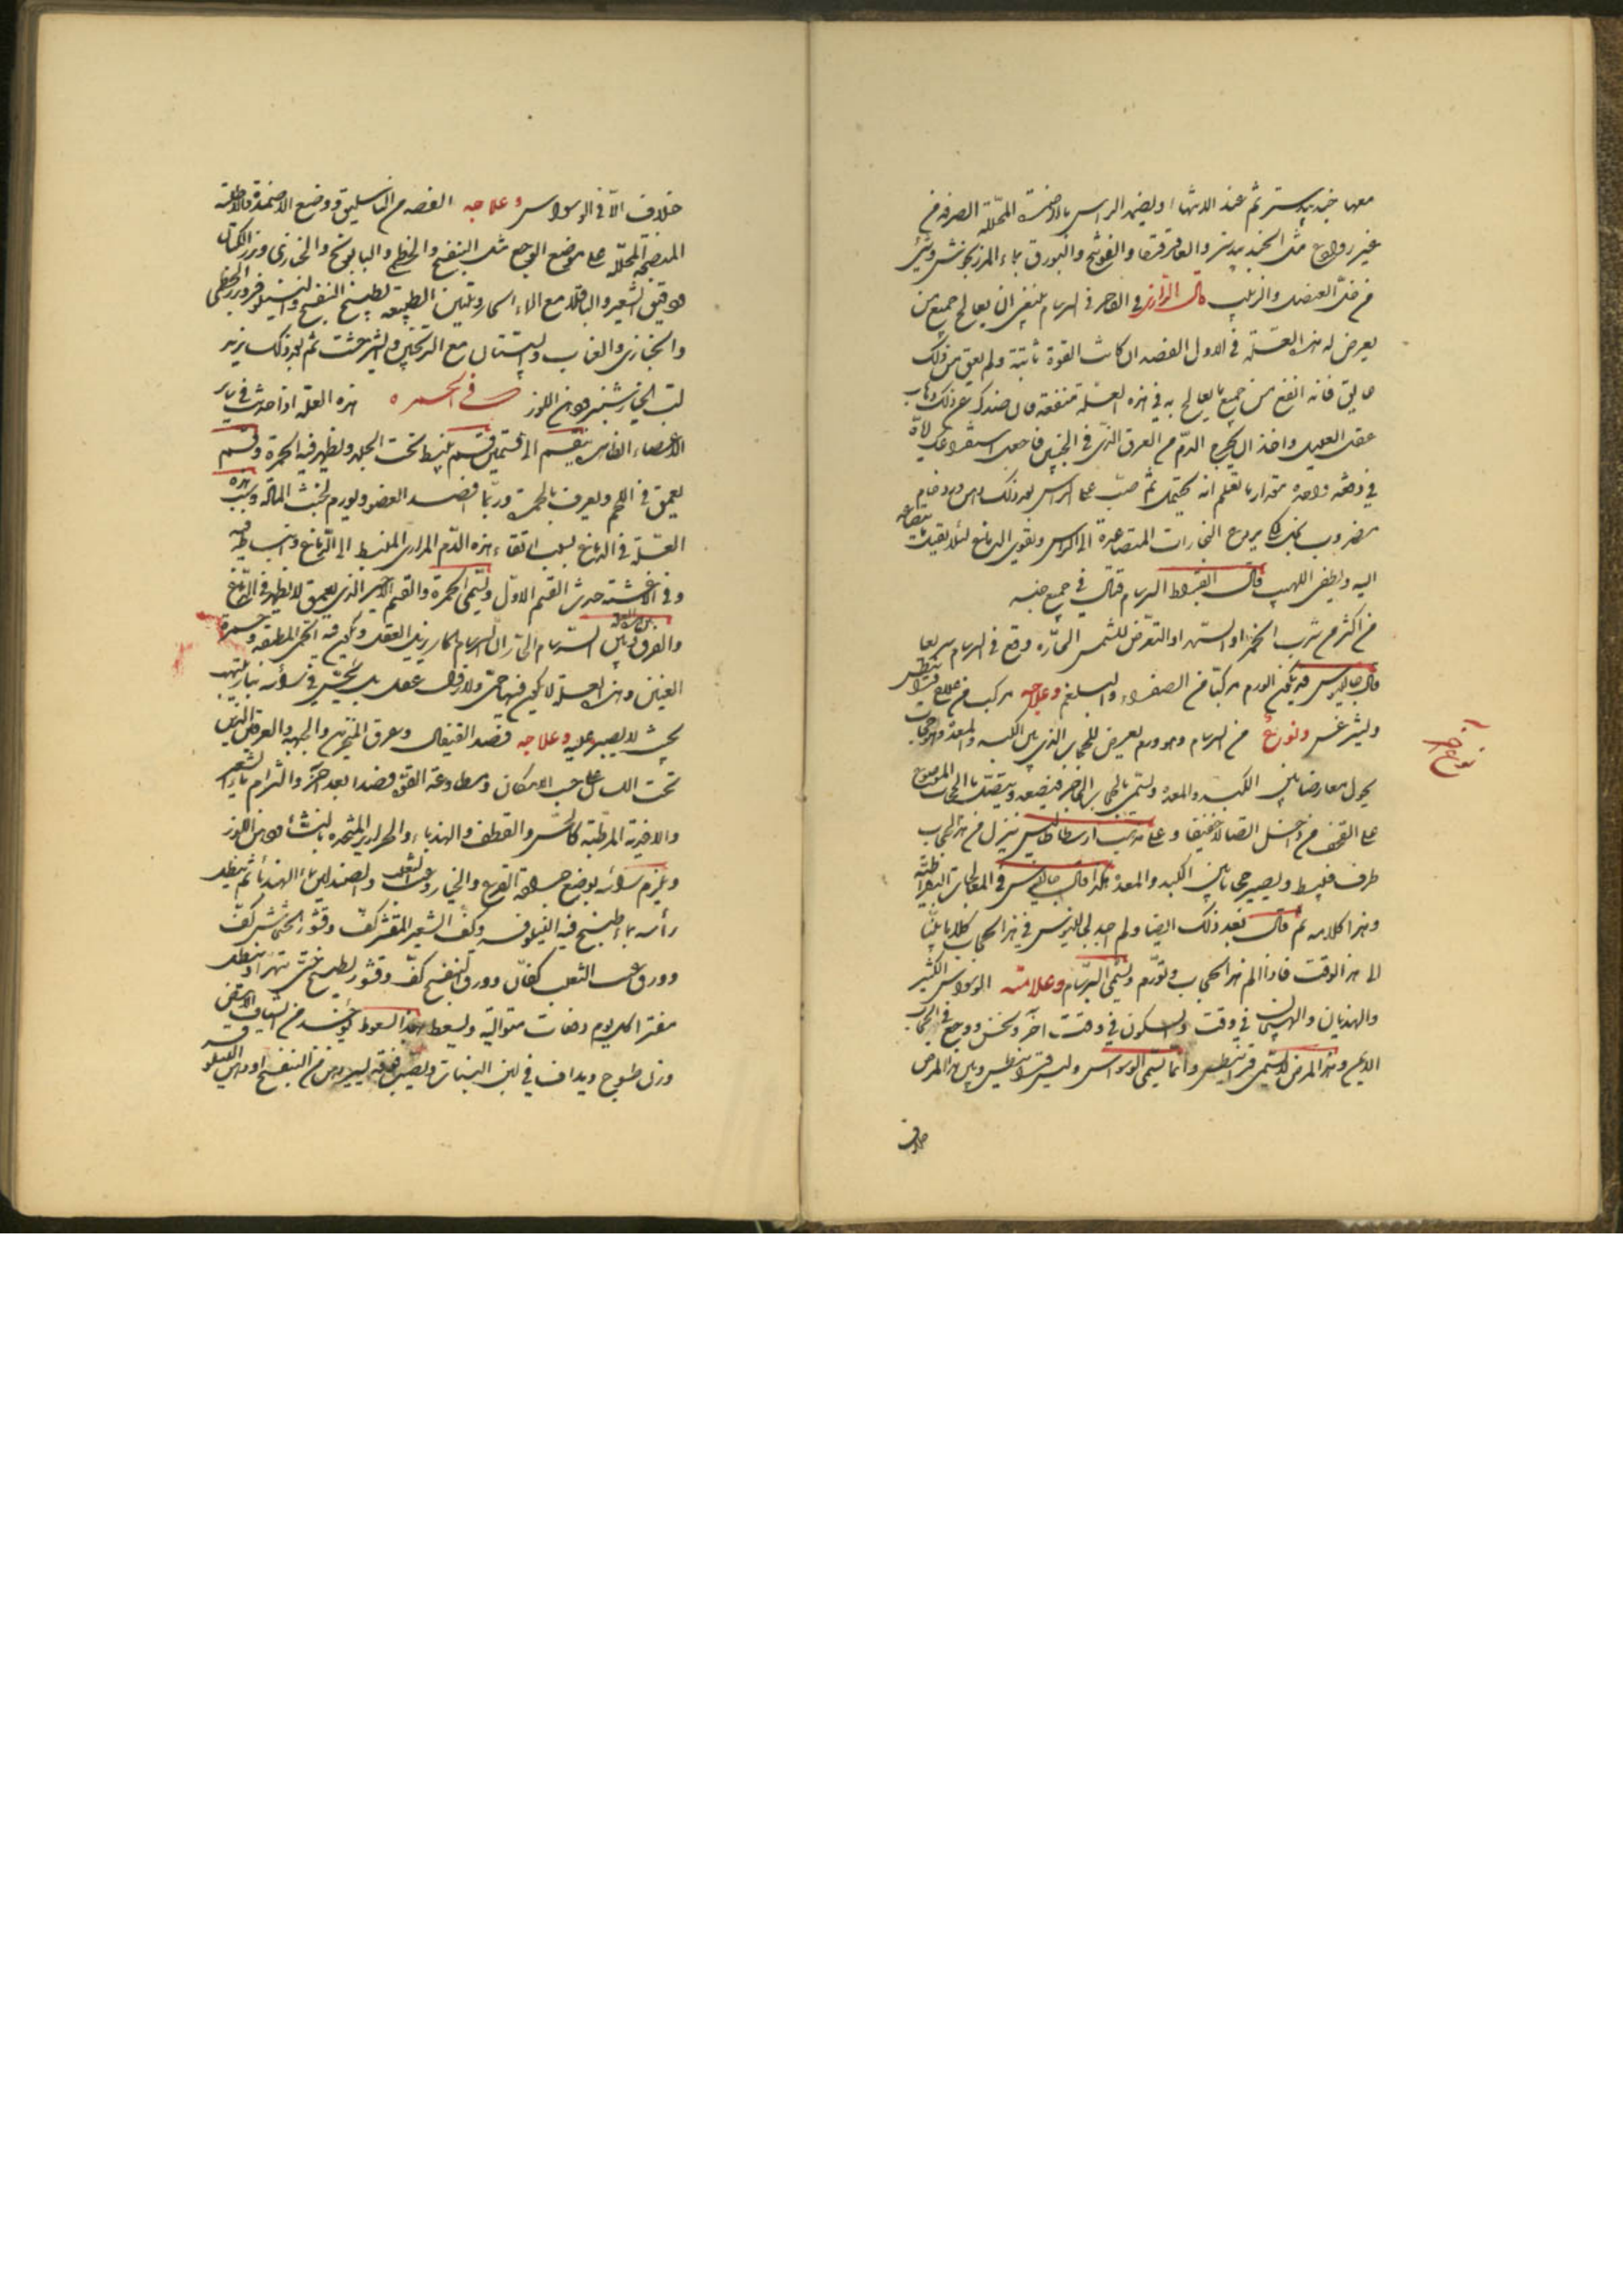 معها جندبيدستر ثم عند الانتهاء ويضمد الراس بالاضمدة المحللة الصرفة من
غير روادع مثل الجندبيدستر والعاقرقرحا والفوتنج والبورق بماء المرزنجوش وشئ
من خل العنصل والزيت قال الرازى فى الفاخر فى السرسام ينبغى ان يعالج جميع من
يعرض له هذه العلة فى الاول الفصد ان كانت القوة ثابتة ولم يعق من ذلك
عايق فانه انفع من جميع ما يعالج به فى هذه العلة منفعة فان ضدك عن ذلك ذهاب
عقل العليل واخذ ان يخرج الدم من العرق الذى فى الجبين فاجعل استفراغك
فى دفعة واحدة مقدار ما تعلم انه يحتمل ثم صب على الراس بعد ذلك دهن ورد خام
مضروب بخل كما يردع البخارات المتصاعدة الى الراس ويقوى الدماغ لئلا يقبل ما يتصاعد
اليه ويطفى اللهيب قال ابقراط السرسام قتال فى جميع
من اكثر من شرب الخمر او السهر او التعرض للشمس الحارة وقع فى السرسام سريعا
قال جالينوس قد يكون الورم مركبا من الصفراء والبلغم وعلاجه مركب من علاج قرانيطس
وليثرغس ونوع من السرسام وهو ورم يعرض للحجاب الذى بين الكبد والمعدة وهو حجاب
نوع آخر
يحول معارضا بين الكبد والمعدة ويسمى بالحجاب الحاجز فيصعد ويتصل بالحجاب الموضوع
على القحف من داخل اتصالا خفيفا وعلى مذهب ارسطاطاليس ينزل من هذا الحجاب
طرف فينبسط ويصير حجابا بين الكبد والمعدة هكذا قال جالينوس فى المعالجات البقراطية
وهذا كلامه ثم قال بعد ذلك ايضا ولم اجد لجالينوس فى هذا الحجاب كلاما بينا
الى هذا الوقت فاذا الم هذا الحجاب وتورم ويسمى البرسام وعلامته الوسواس الكثير
والهذيان والهيجان فى وقت والسكون فى وقت آخر ونخس ووجع فى الجانب
الايمن وهذا المرض لا يسمى قرانيطس وانما يسمى الوسواس وليس قرانيطس وبين هذا المرض
خلاف
خلاف الا فى الوسواس وعلاجه الفصد من الباسليق ووضع الاضمدة والاطلية
المنضجة المحللة على موضع الوجع مثل البنفسج والخطمى والبابونج والخبازى وبزر الكتان
ودقيق الشعير والباقلا مع الماء الحار وتليين الطبيعة بطبيخ البنفسج والنيلوفر وبزر الخطمى
والخبازى والعناب والسپستان مع الترنجبين والشيرخشت ثم بعد ذلك يزيد
لب الخيارشنبر ودهن اللوز فى الحمرة هذه العلة اذا حدثت فى ساير
الاعضاء الظاهرة ينقسم الى قسمين قسم ينبسط تحت الجلد ويظهر فيه الحمرة وقسم
يعمق فى اللحم ويعرف بالحمرة وربما افسد العضو ويورم لخبث المادة وسبب هذه
العلة فى الدماغ بسبب ارتقاء هذه الدم المرارى المنبسط الى الدماغ وانبساطه فيه
وفى الاغشية حدث القسم الاول ويسمى الحمرة والقسم الاخير الذى يعمق لا يظهر فى الدماغ
والفرق بين هذه العلة وبين السرسام الحار ان السرسام الحار يزيل العقل ويكون فيه الحمى المطبقة وحمرة
العينين وهذه العلة لا يكون فيها حمى ولا زوال عقل بل يحس فى راسه بنار تلتهب
بحيث لا يصبر عليه وعلاجه فصد القيفال وعرق المنخرين والجبهة والعرقين الذين
تحت اللسان على حسب الامكان ومطاوعة القوة فصدا بعد آخر والتزام ماء الشعير
والاغذية المرطبة كالخس والقطف والهندباء والحريرة المتخذة بالنشا ودهن اللوز
ويلزم راسه بوضع جرادة القرع والخيار وعنب الثعلب والصندلين بماء الهندباء ثم ينطل
راسه بماء طبيخ فيه النيلوفر وكف الشعير المقشر كف وقشور الخشخاش كف
وورق عنب الثعلب كفان وورق البنفسج كف وقشور يطبخ حتى يتهرا وينطل
مفترا كل يوم دفعات متوالية ويسعط بهذا السعوط يؤخذ من الشياف الابيض
وزن طسوج ويداف فى لبن البنات ويصير فوقه يسير دهن من البنفسج او دهن النيلوفر